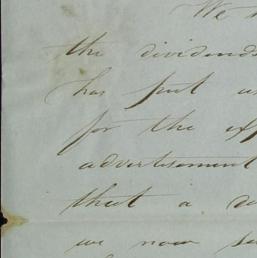 We
the dividends
has put us
for the
advertisement
that a
we now